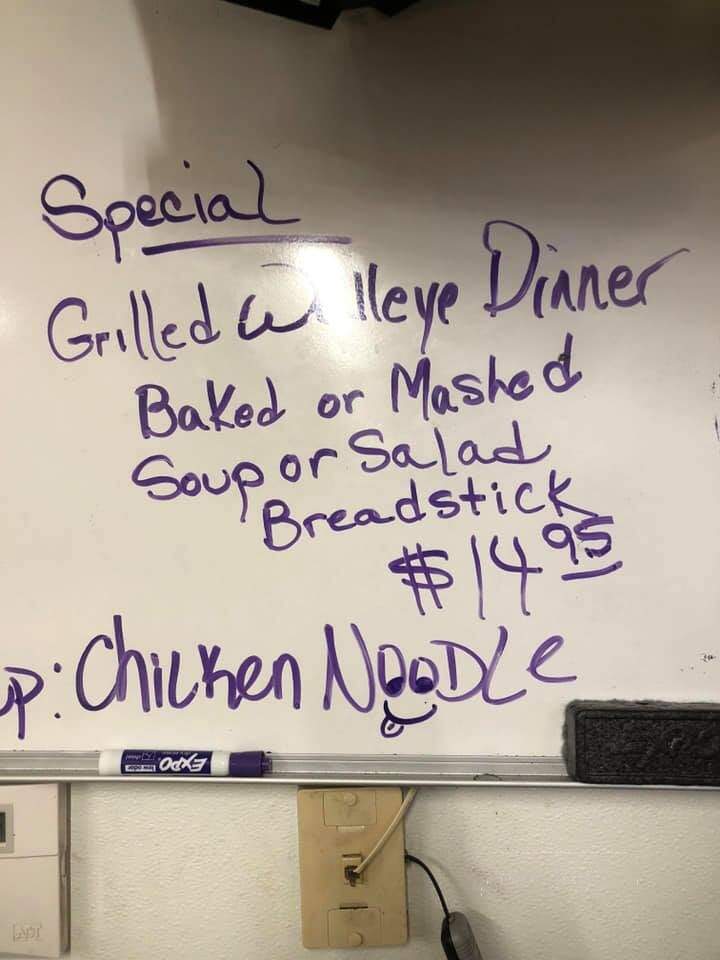 Special
Grilled Walleye Dinner
Baked or Mashed
Soup or Salad
Breadstick
$14.95
up: Chicken NooDLe
EXPO
low odor